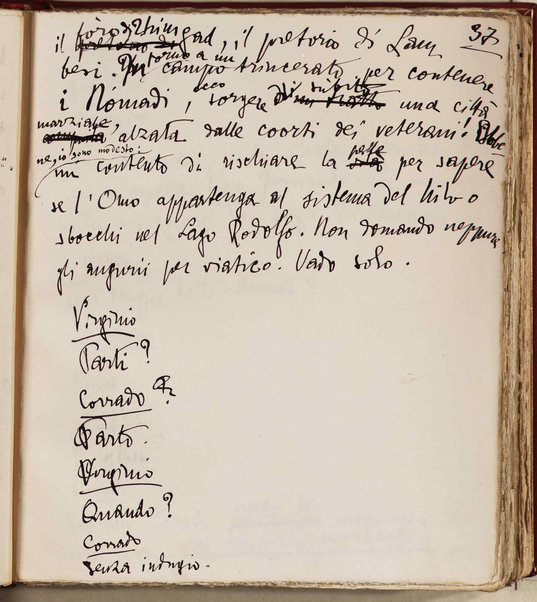 37
foro di Thim
il pretorio di gad, il pretorio di Lam
intorno a un
besi. campo trincerato per contenere
ecco di subito
i Nomadi, sorgere una città
marziale,
alzata dalle coorti dei veterani!
sono modesto:
mi contento di rischiare la pelle per sapere
se l'Omo appartenga al sistema del Nilo o
sbocchi nel Lago Rodolfo. Non domando neppure
gli augurii per viatico. Vado solo.
Virginio
Parti?
Corrado
Parto.
Virginio
Quando?
Corrado
Senza indugio.